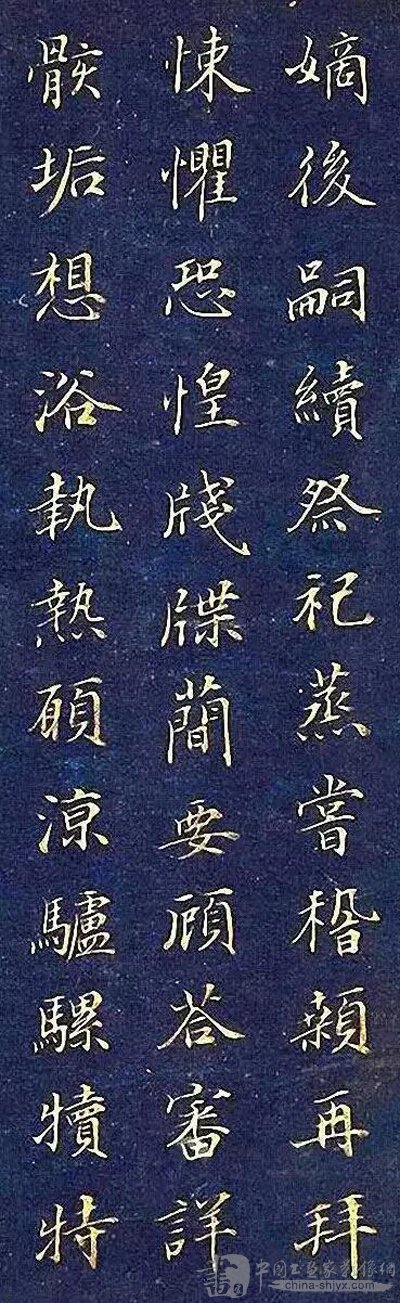 嫡後嗣續祭祀蒸嘗稽顙再拜
悚懼恐惶牋牒蕳要顧荅審詳
骸垢想浴執熱願涼驢騾犢特
中国书画家影像網
china-shjyx.com